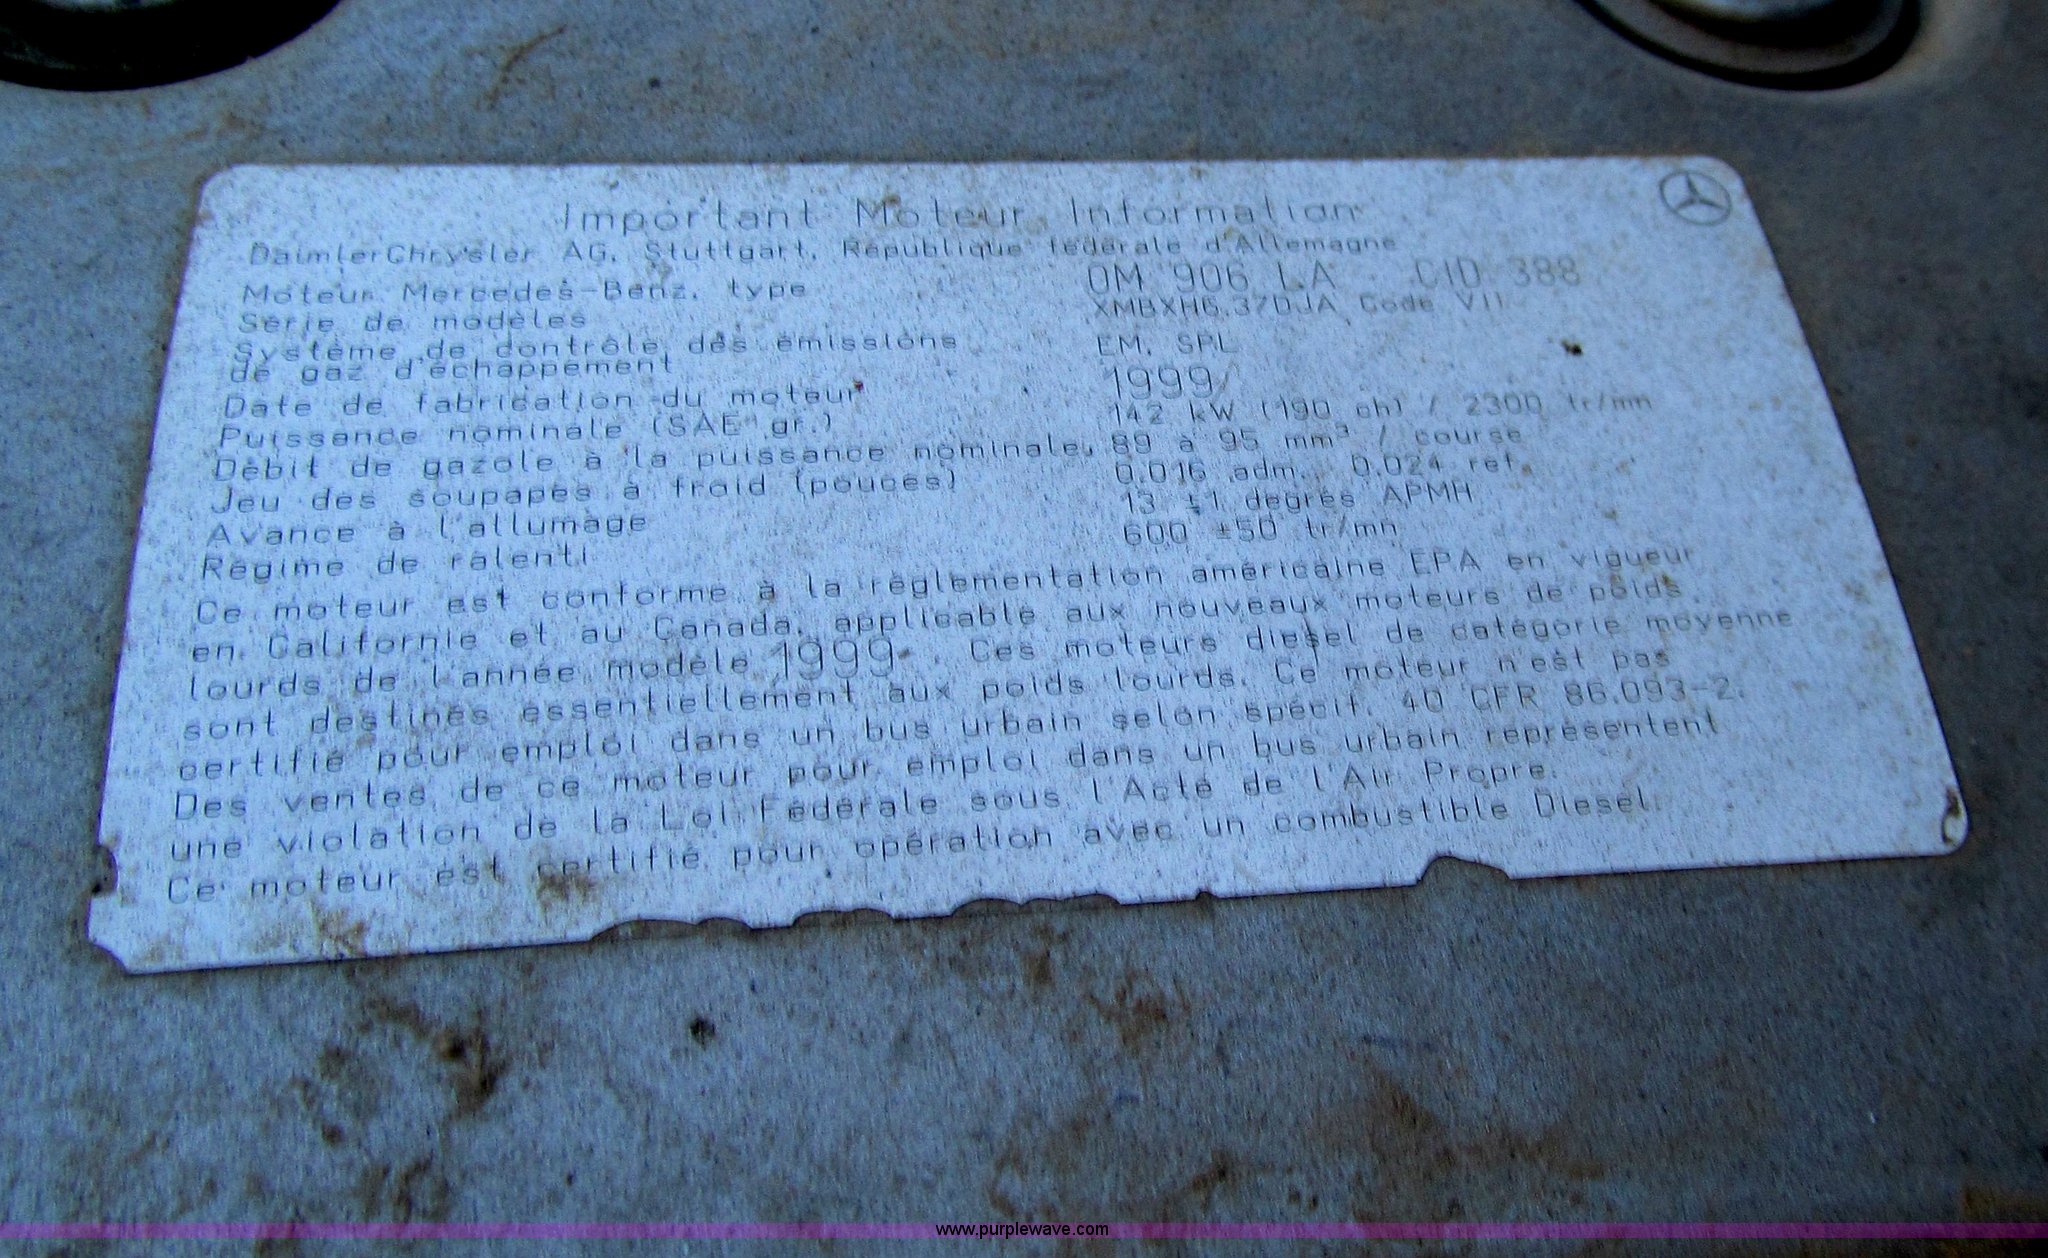 Important Moteur Information
DaimlerChrysler AG, Stuttgart, République fédérale d'Allemagne
Moteur Mercedes-Benz, type OM 906 LA CID 388
Série de modèles XMBXH6.37DJA Code VII
Système de contrôle des émissions
de gaz d'échappement EM. SPL
Date de fabrication du moteur 1999
Puissance nominale (SAE gr.) 142 kW (190 ch) / 2300 tr/mn
Débit de gazole à la puissance nominale, 89 à 95 mm³ / course
Jeu des soupapes à froid (pouces) 0.016 adm. 0.024 ref.
Avance à l'allumage 13 ±1 degrés APMH
Régime de ralenti 600 ±50 tr/mn
Ce moteur est conforme à la réglementation américaine EPA en vigueur
en Californie et au Canada, applicable aux nouveaux moteurs de poids
lourds de l'année modèle 1999. Ces moteurs diesel de catégorie moyenne
sont destinés essentiellement aux poids lourds. Ce moteur n'est pas
certifié pour emploi dans un bus urbain selon spécif. 40 CFR 86.093-2.
Des ventes de ce moteur pour emploi dans un bus urbain représentent
une violation de la Loi Fédérale sous l'Acte de l'Air Propre.
Ce moteur est certifié pour opération avec un combustible Diesel.
www.purplewave.com